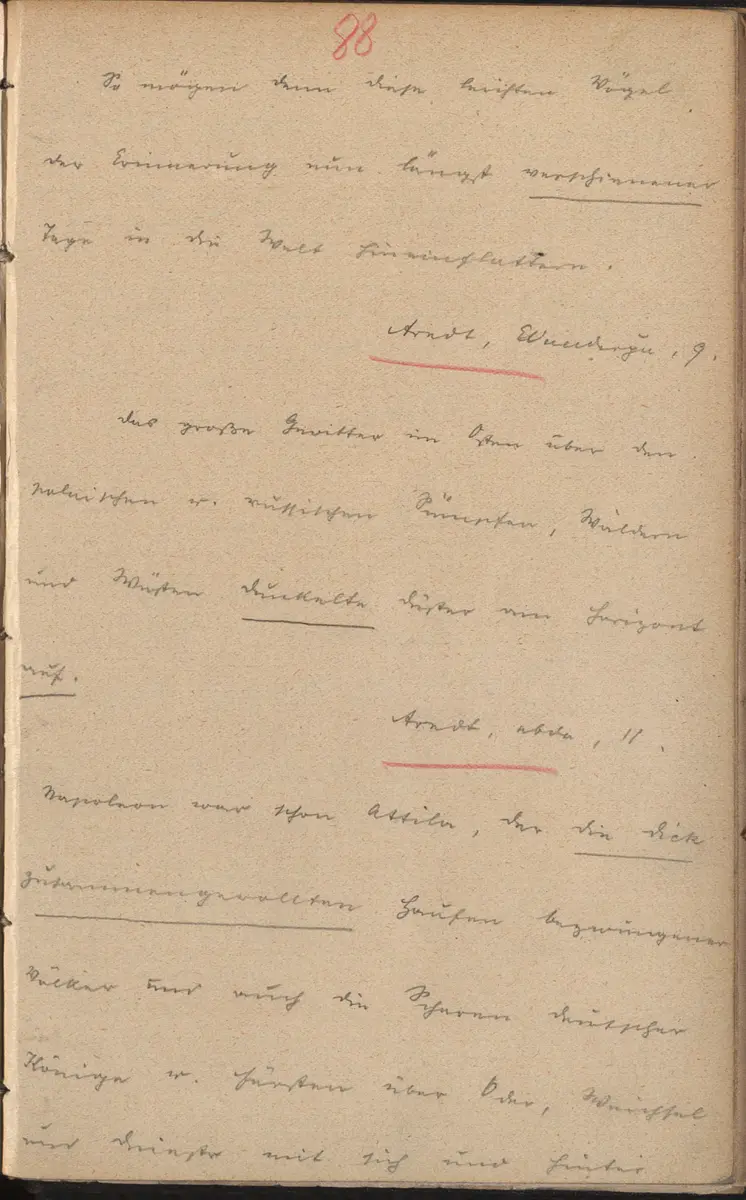 88
So mögen denn diese leichten Vögel
der Erinnerung nun längst verschienener
Tage in die Welt hineinflattern.
Arndt, Wandergn, 9.
Das große Gewitter im Osten über den
polnischen u. russischen Sümpfen, Wäldern
und Wüsten dunkelte düster am Horizont
auf.
Arndt, ebda, 11.
Napoleon war schon Attila, der die dick
zusammengerollten Haufen bezwungener
Völker und auch die Scharen deutscher
Könige u. Fürsten über Oder, Weichsel
und Dniestr mit sich und hinter